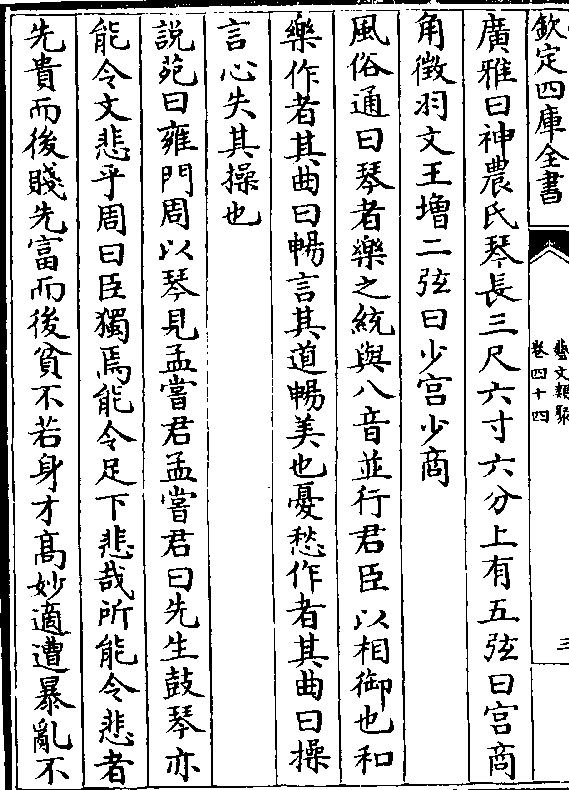 欽定四庫全書
藝文類聚
卷四十四
三
廣雅曰神農氏琴長三尺六寸六分上有五弦曰宫商
角徴羽文王增二弦曰少宫少商
風俗通曰琴者樂之統與八音並行君臣以相御也和
樂作者其曲曰暢言其道暢美也憂愁作者其曲曰操
言心失其操也
説苑曰雍門周以琴見孟嘗君孟嘗君曰先生鼓琴亦
能令文悲乎周曰臣獨焉能令足下悲哉所能令悲者
先貴而後賤先富而後貧不若身才髙妙適遭暴亂不